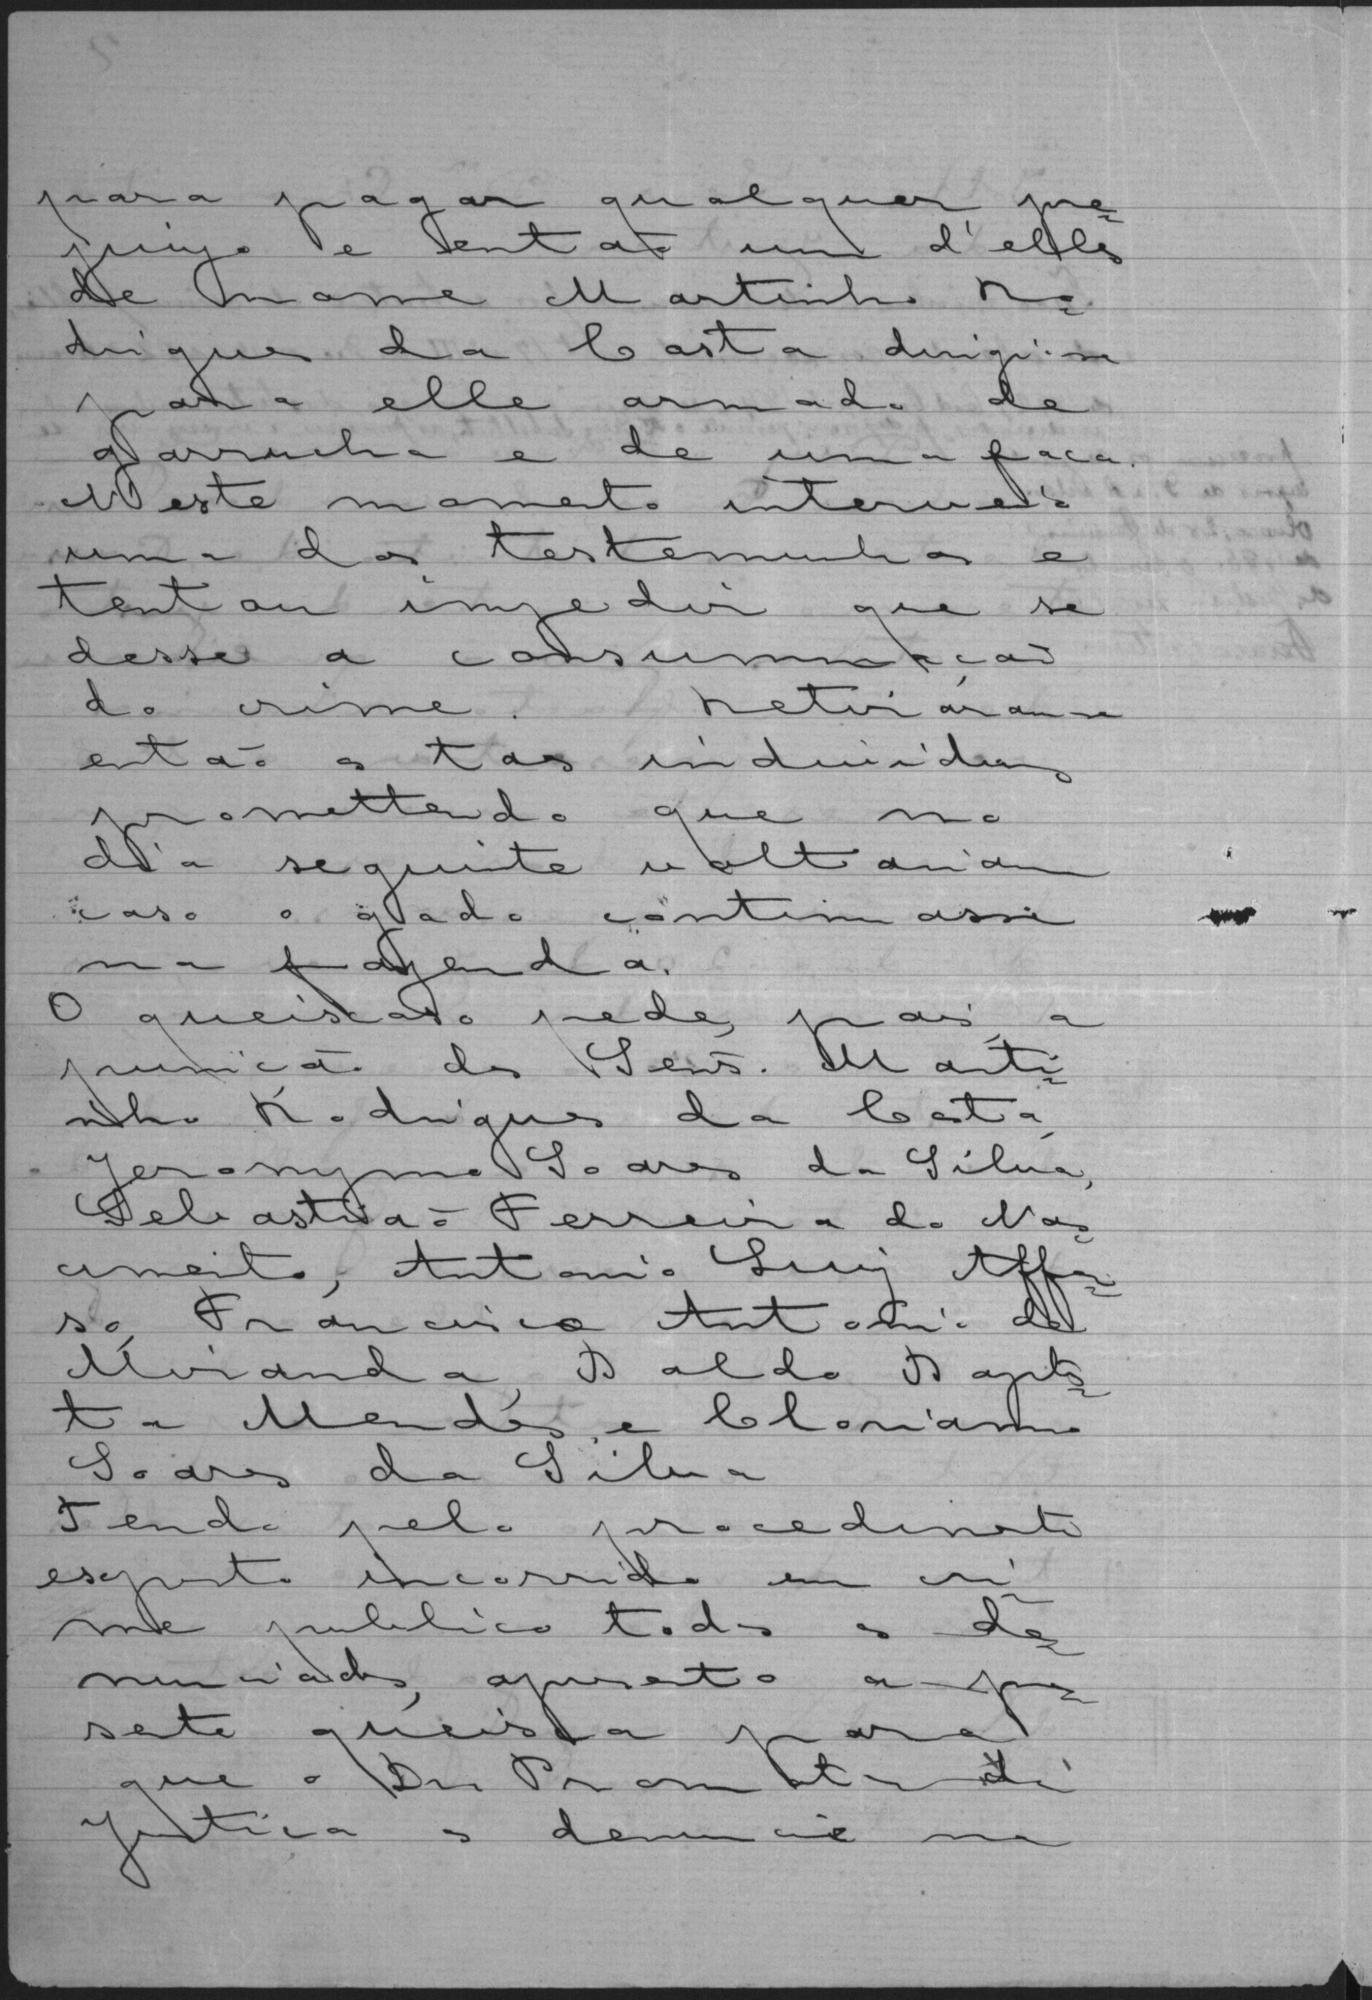 para pagar qualquer pre-
juizo e então um d'elles
de nome Martinho Ro-
drigues da Costa dirigio-se
para elle armado de
garrucha e de uma faca.
Neste momento interveio
uma das testemunhas e
tentou impedir que se
desse a consummação
do crime. Retiráram-se
então os taes individuos
promettendo que no
dia seguinte voltariam
caso o gado continuasse
na fazenda.
O queixoso pede, pois, a
punicão dos Senrs. Marti-
nho Rodrigues da Costa,
Jeronymo Soares da Silva,
Sebastião Ferreira do Nas-
cimento, Antonio Luiz Affon-
so, Francisco Antonio de
Miranda, Baldo Baptis-
ta Mendes e Cloriano
Soares da Silva
Tendo pelo procedimento
exposto incorrido em cri-
me publico todos os de-
nunciados, apresento a pre-
sente queixa para
que o Dr Promotor de
Justiça os denuncie na